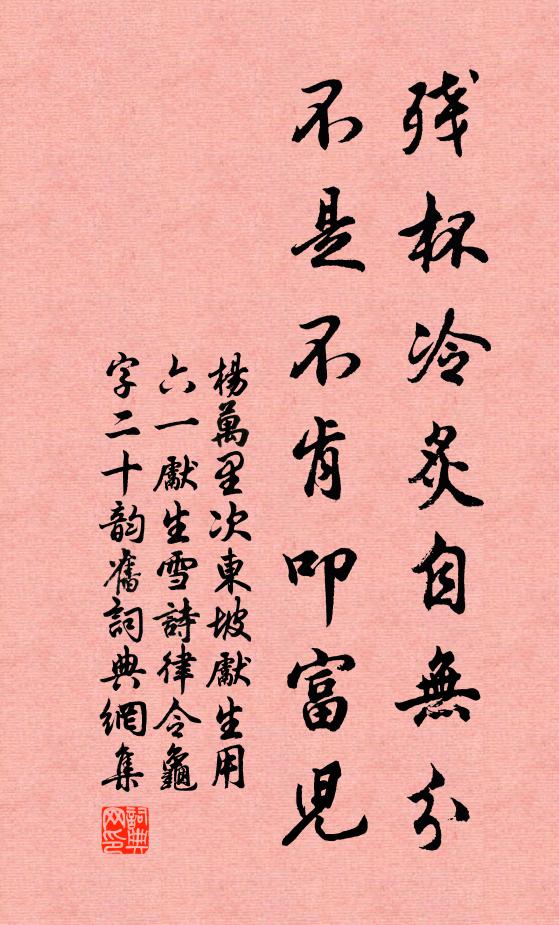 残杯冷炙自無分
不是不肯叩富児
楊萬里次東坡獻生用
六一獻生雪詩律令龜
字二十韵詞典網集
詞典
网印